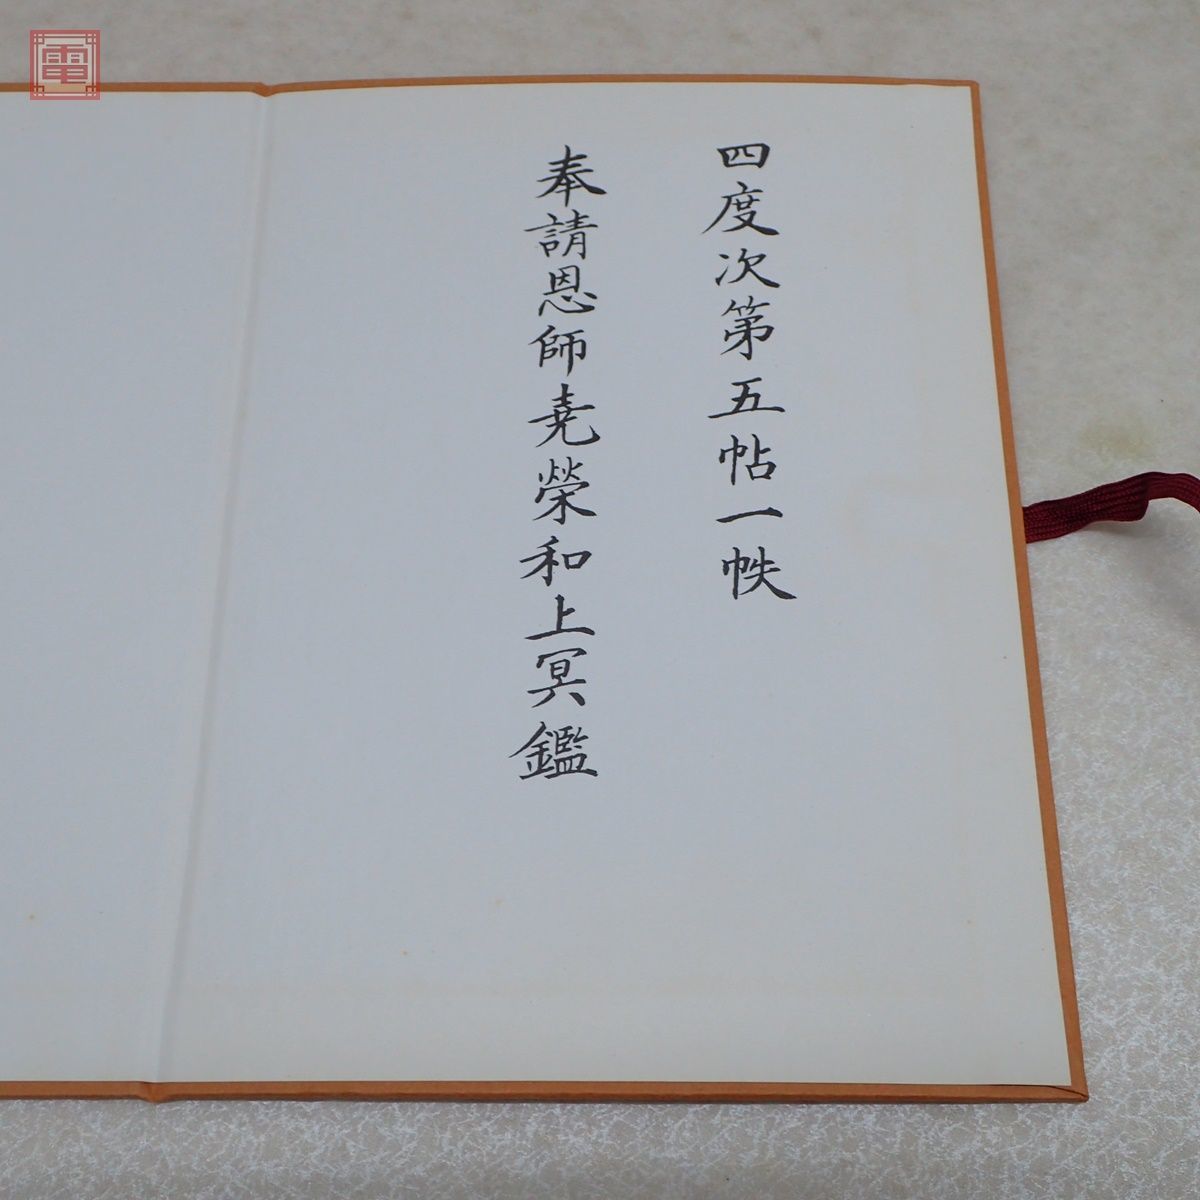 四度次第五帖一帙
奉請恩師尭榮和上冥鑑
電